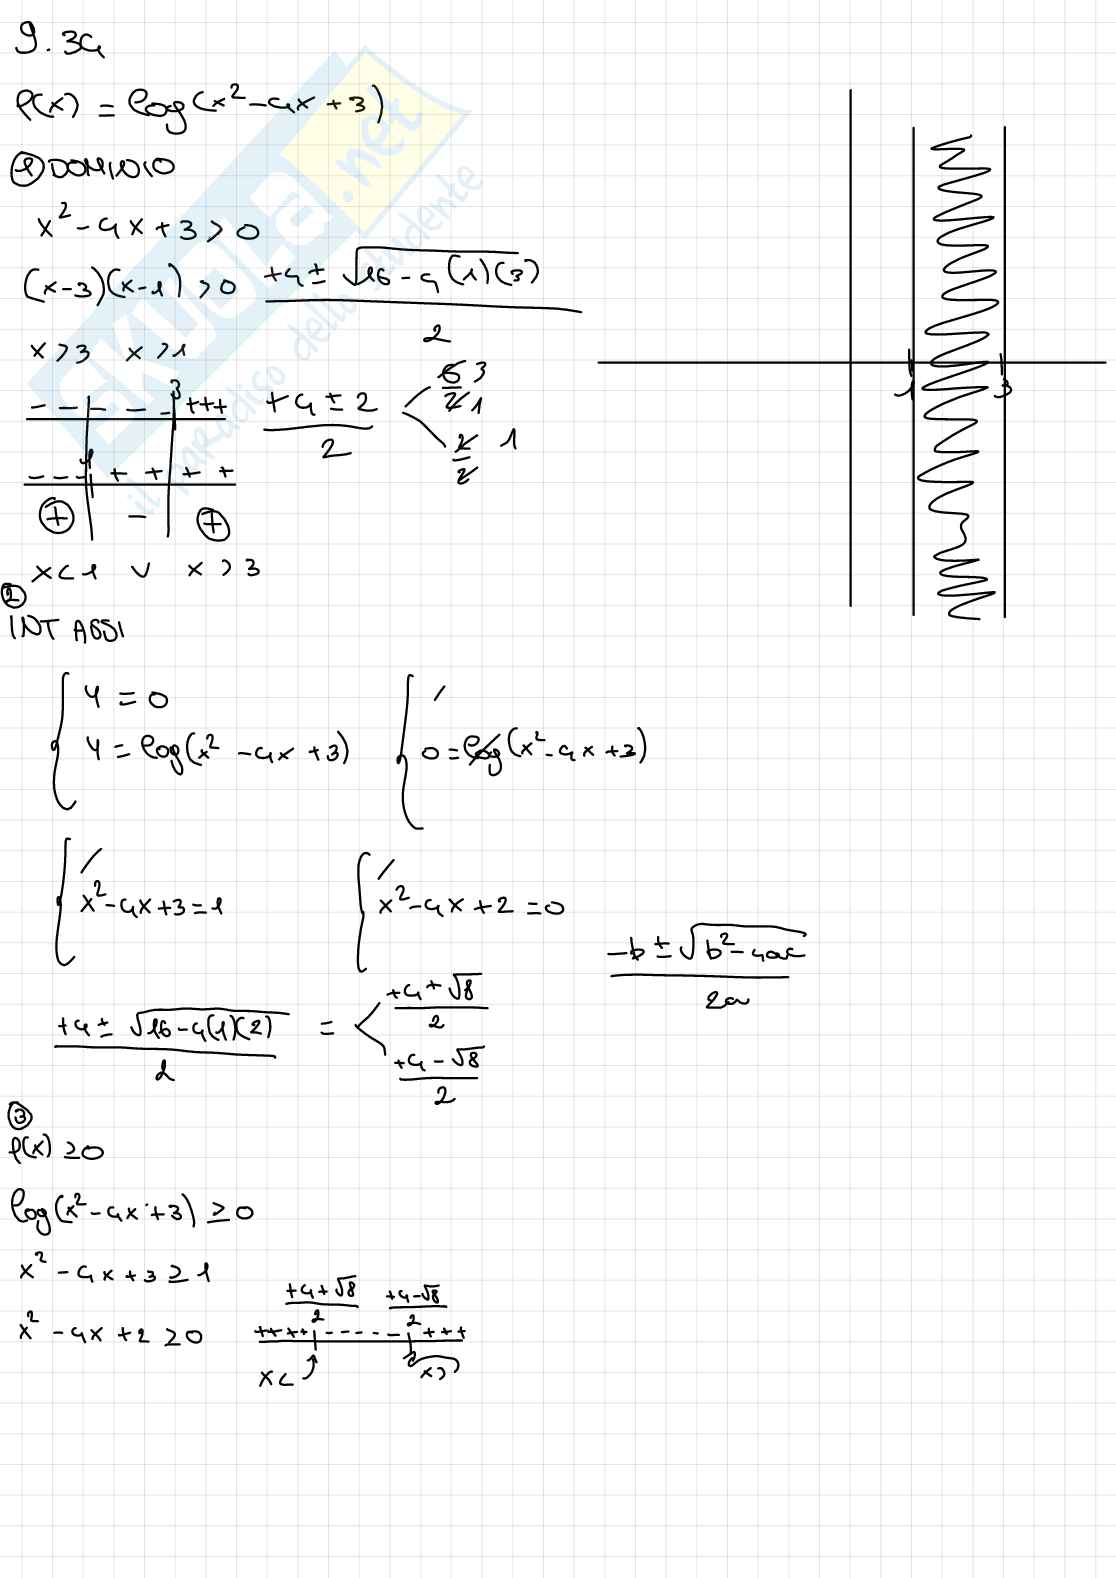 9.34
f(x) = log(x² - 4x + 3)
① DOMINIO
x² - 4x + 3 > 0
(x-3)(x-1) > 0   +4 ± √16 - 4(1)(3) / 2
x > 3   x > 1
+4 ± 2 / 2   6/2 3 1
2/2 1
- - - - - 3 +++
- - - 1 + + + +
+ - +
x < 1 ∨ x > 3
1 3
②
INT ASSI
{ y = 0
y = log(x² - 4x + 3)   { / 0 = log(x² - 4x + 3)
{ / x² - 4x + 3 = 1   { / x² - 4x + 2 = 0
-b ± √b² - 4ac / 2a
+4 ± √16 - 4(1)(2) / 2 = +4 + √8 / 2
+4 - √8 / 2
③
f(x) ≥ 0
log(x² - 4x + 3) ≥ 0
x² - 4x + 3 ≥ 1
x² - 4x + 2 ≥ 0   +4 + √8 / 2   +4 - √8 / 2
++++ - - - - - +++
x <   x >
SKUOLA.net
il paradiso dello studente